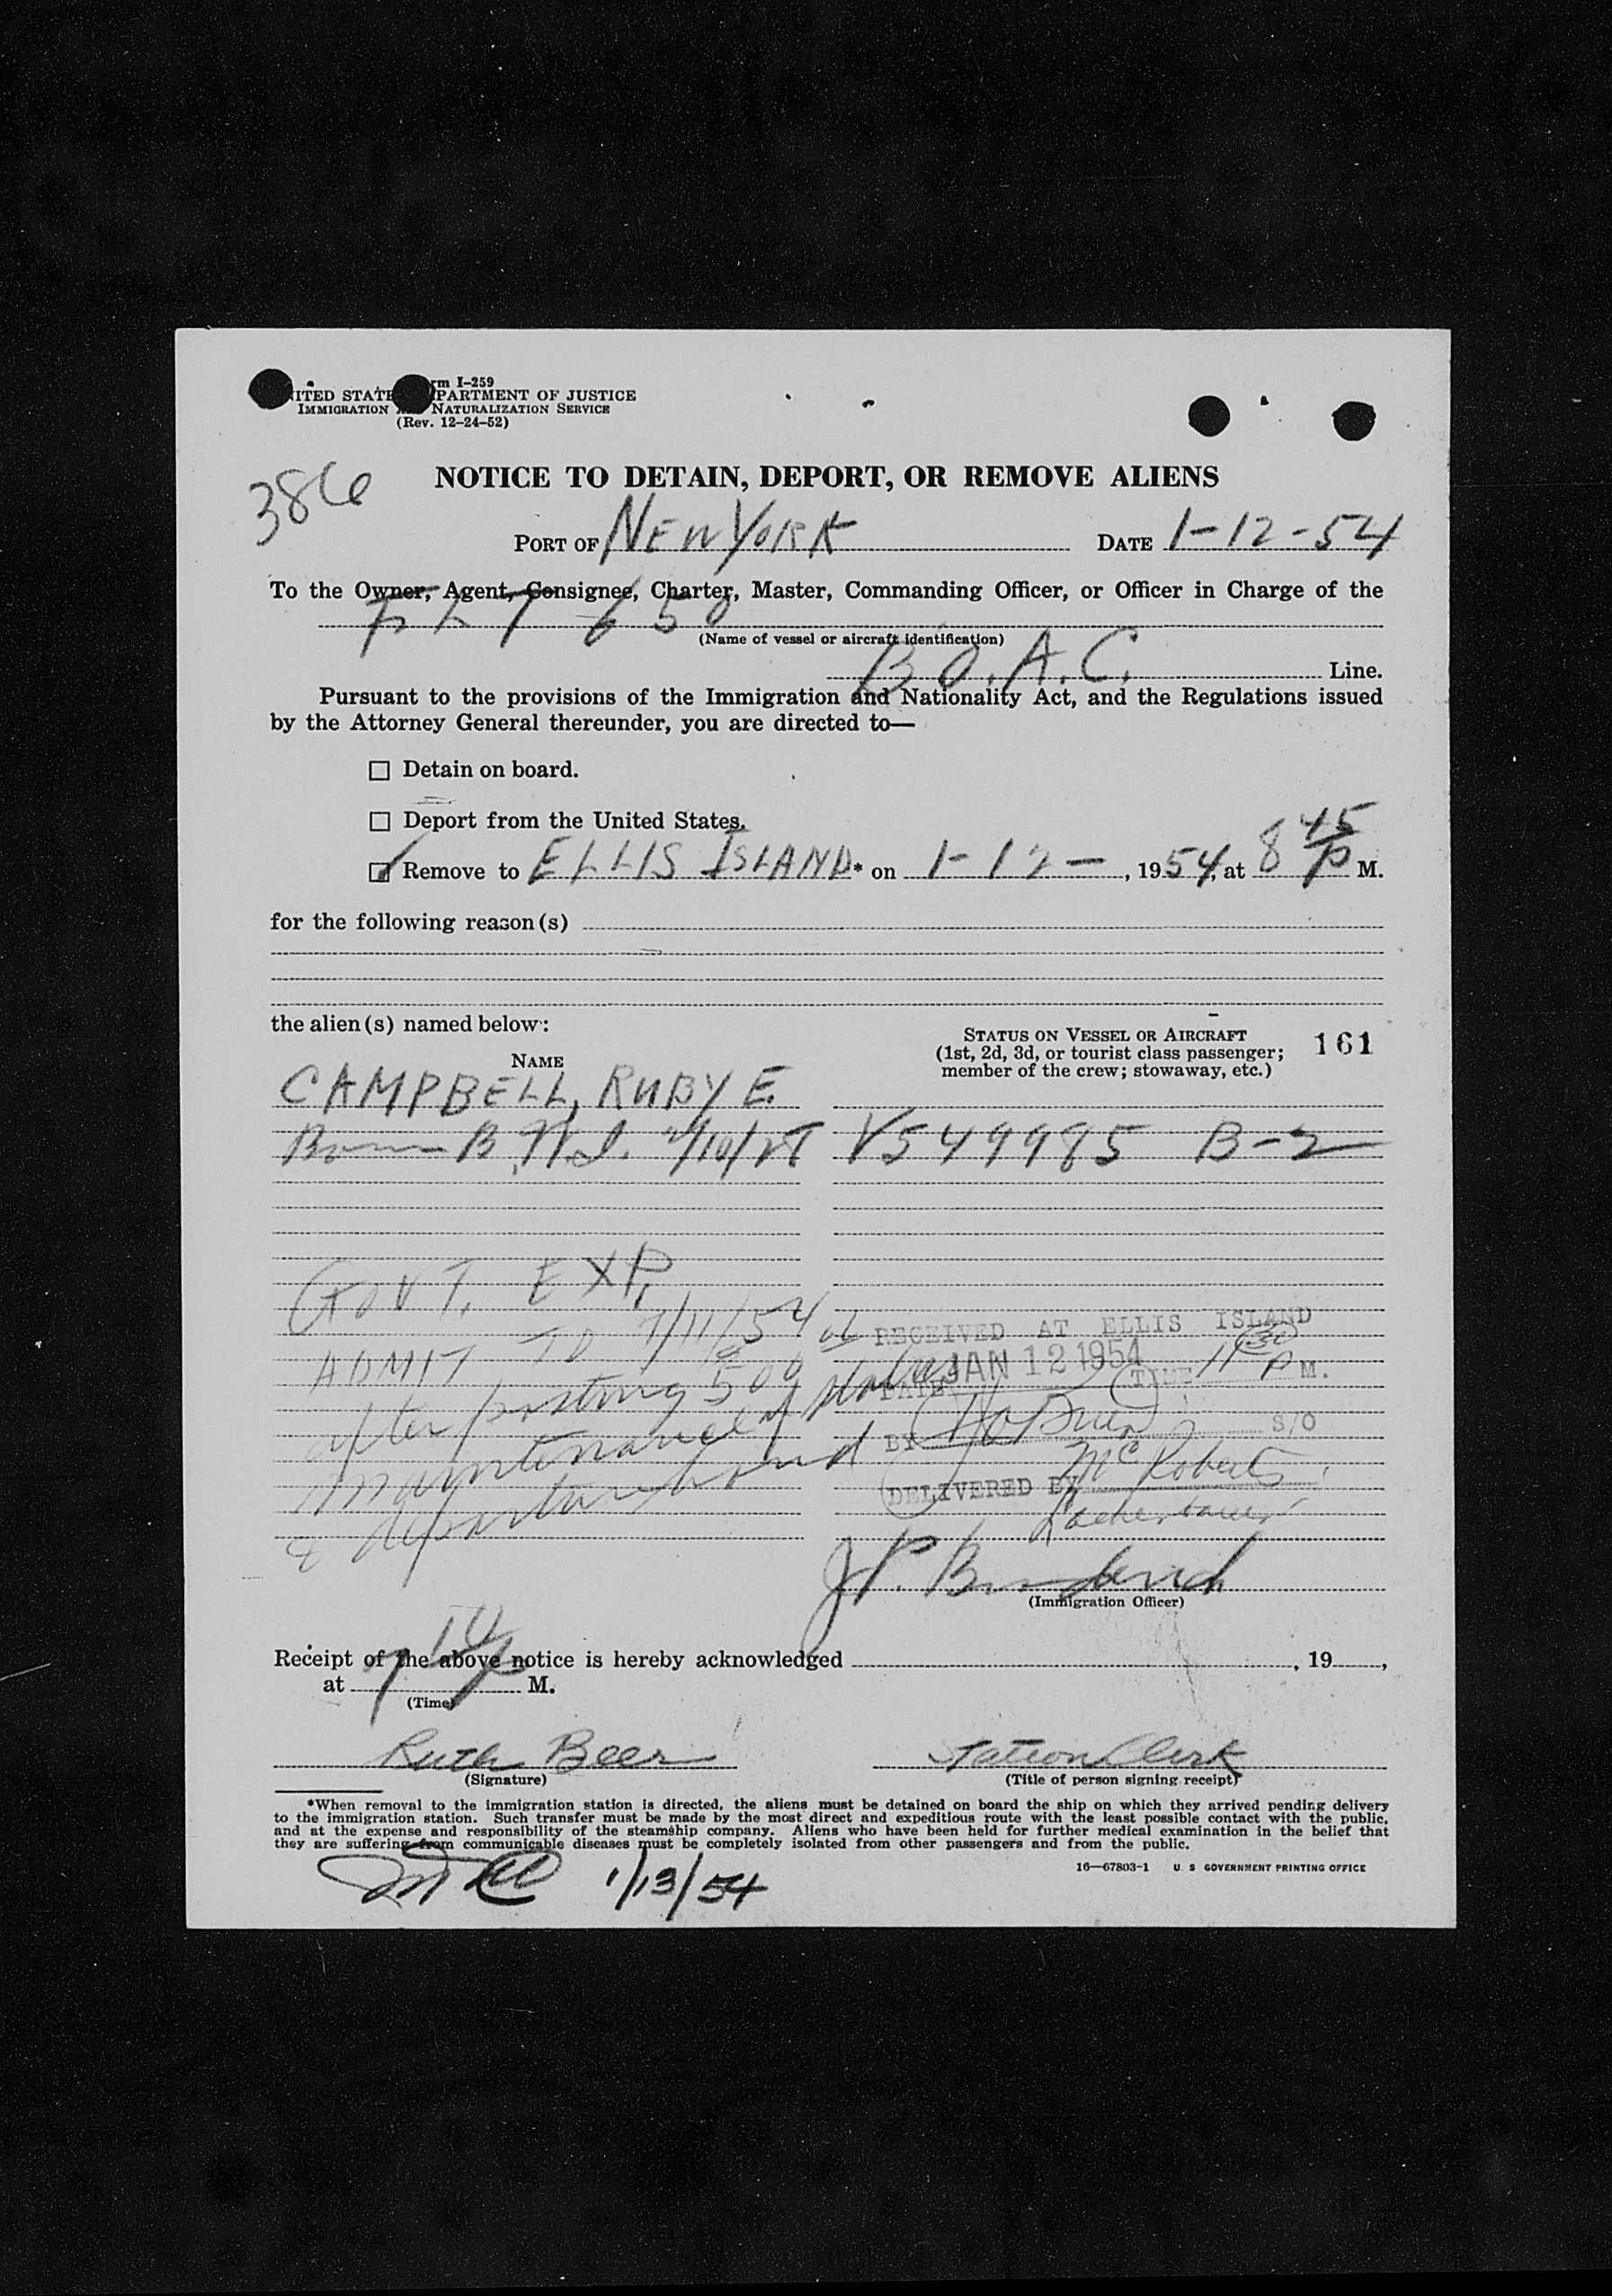 Form I-259
UNITED STATES DEPARTMENT OF JUSTICE
IMMIGRATION AND NATURALIZATION SERVICE
(Rev. 12-24-52)
386
NOTICE TO DETAIN, DEPORT, OR REMOVE ALIENS
PORT OF NEW YORK DATE 1-12-54
To the Owner, Agent, Consignee, Charter, Master, Commanding Officer, or Officer in Charge of the
FLT 650
(Name of vessel or aircraft identification)
B.O.A.C. Line.
Pursuant to the provisions of the Immigration and Nationality Act, and the Regulations issued
by the Attorney General thereunder, you are directed to—
Detain on board.
Deport from the United States.
Remove to ELLIS ISLAND* on 1-12-, 1954, at 8 45 P M.
for the following reason(s)
the alien(s) named below:
STATUS ON VESSEL OR AIRCRAFT
(1st, 2d, 3d, or tourist class passenger;
member of the crew; stowaway, etc.)
161
NAME
CAMPBELL, RUBY E.
Born B.W.I. V549985 B-2
GOVT. EXP.
ADMIT TO 7/11/54
after posting 500
maintenance of status
& departure bond
RECEIVED AT ELLIS ISLAND
DATE JAN 12 1954 TIME 11 30 P M.
BY S/O
DELIVERED BY McRoberts
(Immigration Officer)
Receipt of the above notice is hereby acknowledged , 19 ,
at 7 10 P M.
(Time)
Ruth Beer Station Clerk
(Signature) (Title of person signing receipt)
*When removal to the immigration station is directed, the aliens must be detained on board the ship on which they arrived pending delivery
to the immigration station. Such transfer must be made by the most direct and expeditious route with the least possible contact with the public,
and at the expense and responsibility of the steamship company. Aliens who have been held for further medical examination in the belief that
they are suffering from communicable diseases must be completely isolated from other passengers and from the public.
16—67803-1 U. S GOVERNMENT PRINTING OFFICE
1/13/54